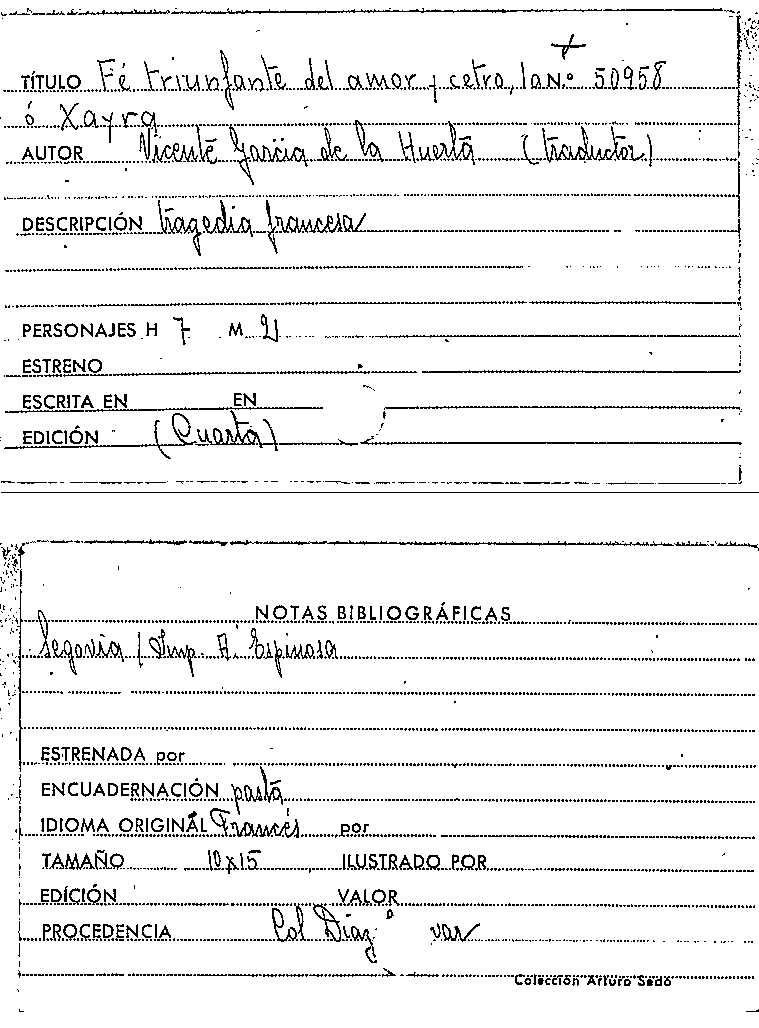 TÍTULO Fé triunfante del amor y cetro, la N.º 50958
ó Xayra
AUTOR Vicente García de la Huerta (traductor)
DESCRIPCIÓN tragedia francesa
PERSONAJES H 7 M 2
ESTRENO
ESCRITA EN EN
EDICIÓN (Cuarta)
NOTAS BIBLIOGRÁFICAS
Segovia / Imp. A. Espinosa
ESTRENADA por
ENCUADERNACIÓN pasta
IDIOMA ORIGINAL Francés por
TAMAÑO 10x15 ILUSTRADO POR
EDICIÓN VALOR
PROCEDENCIA Col Díaz
Colección Arturo Sedó